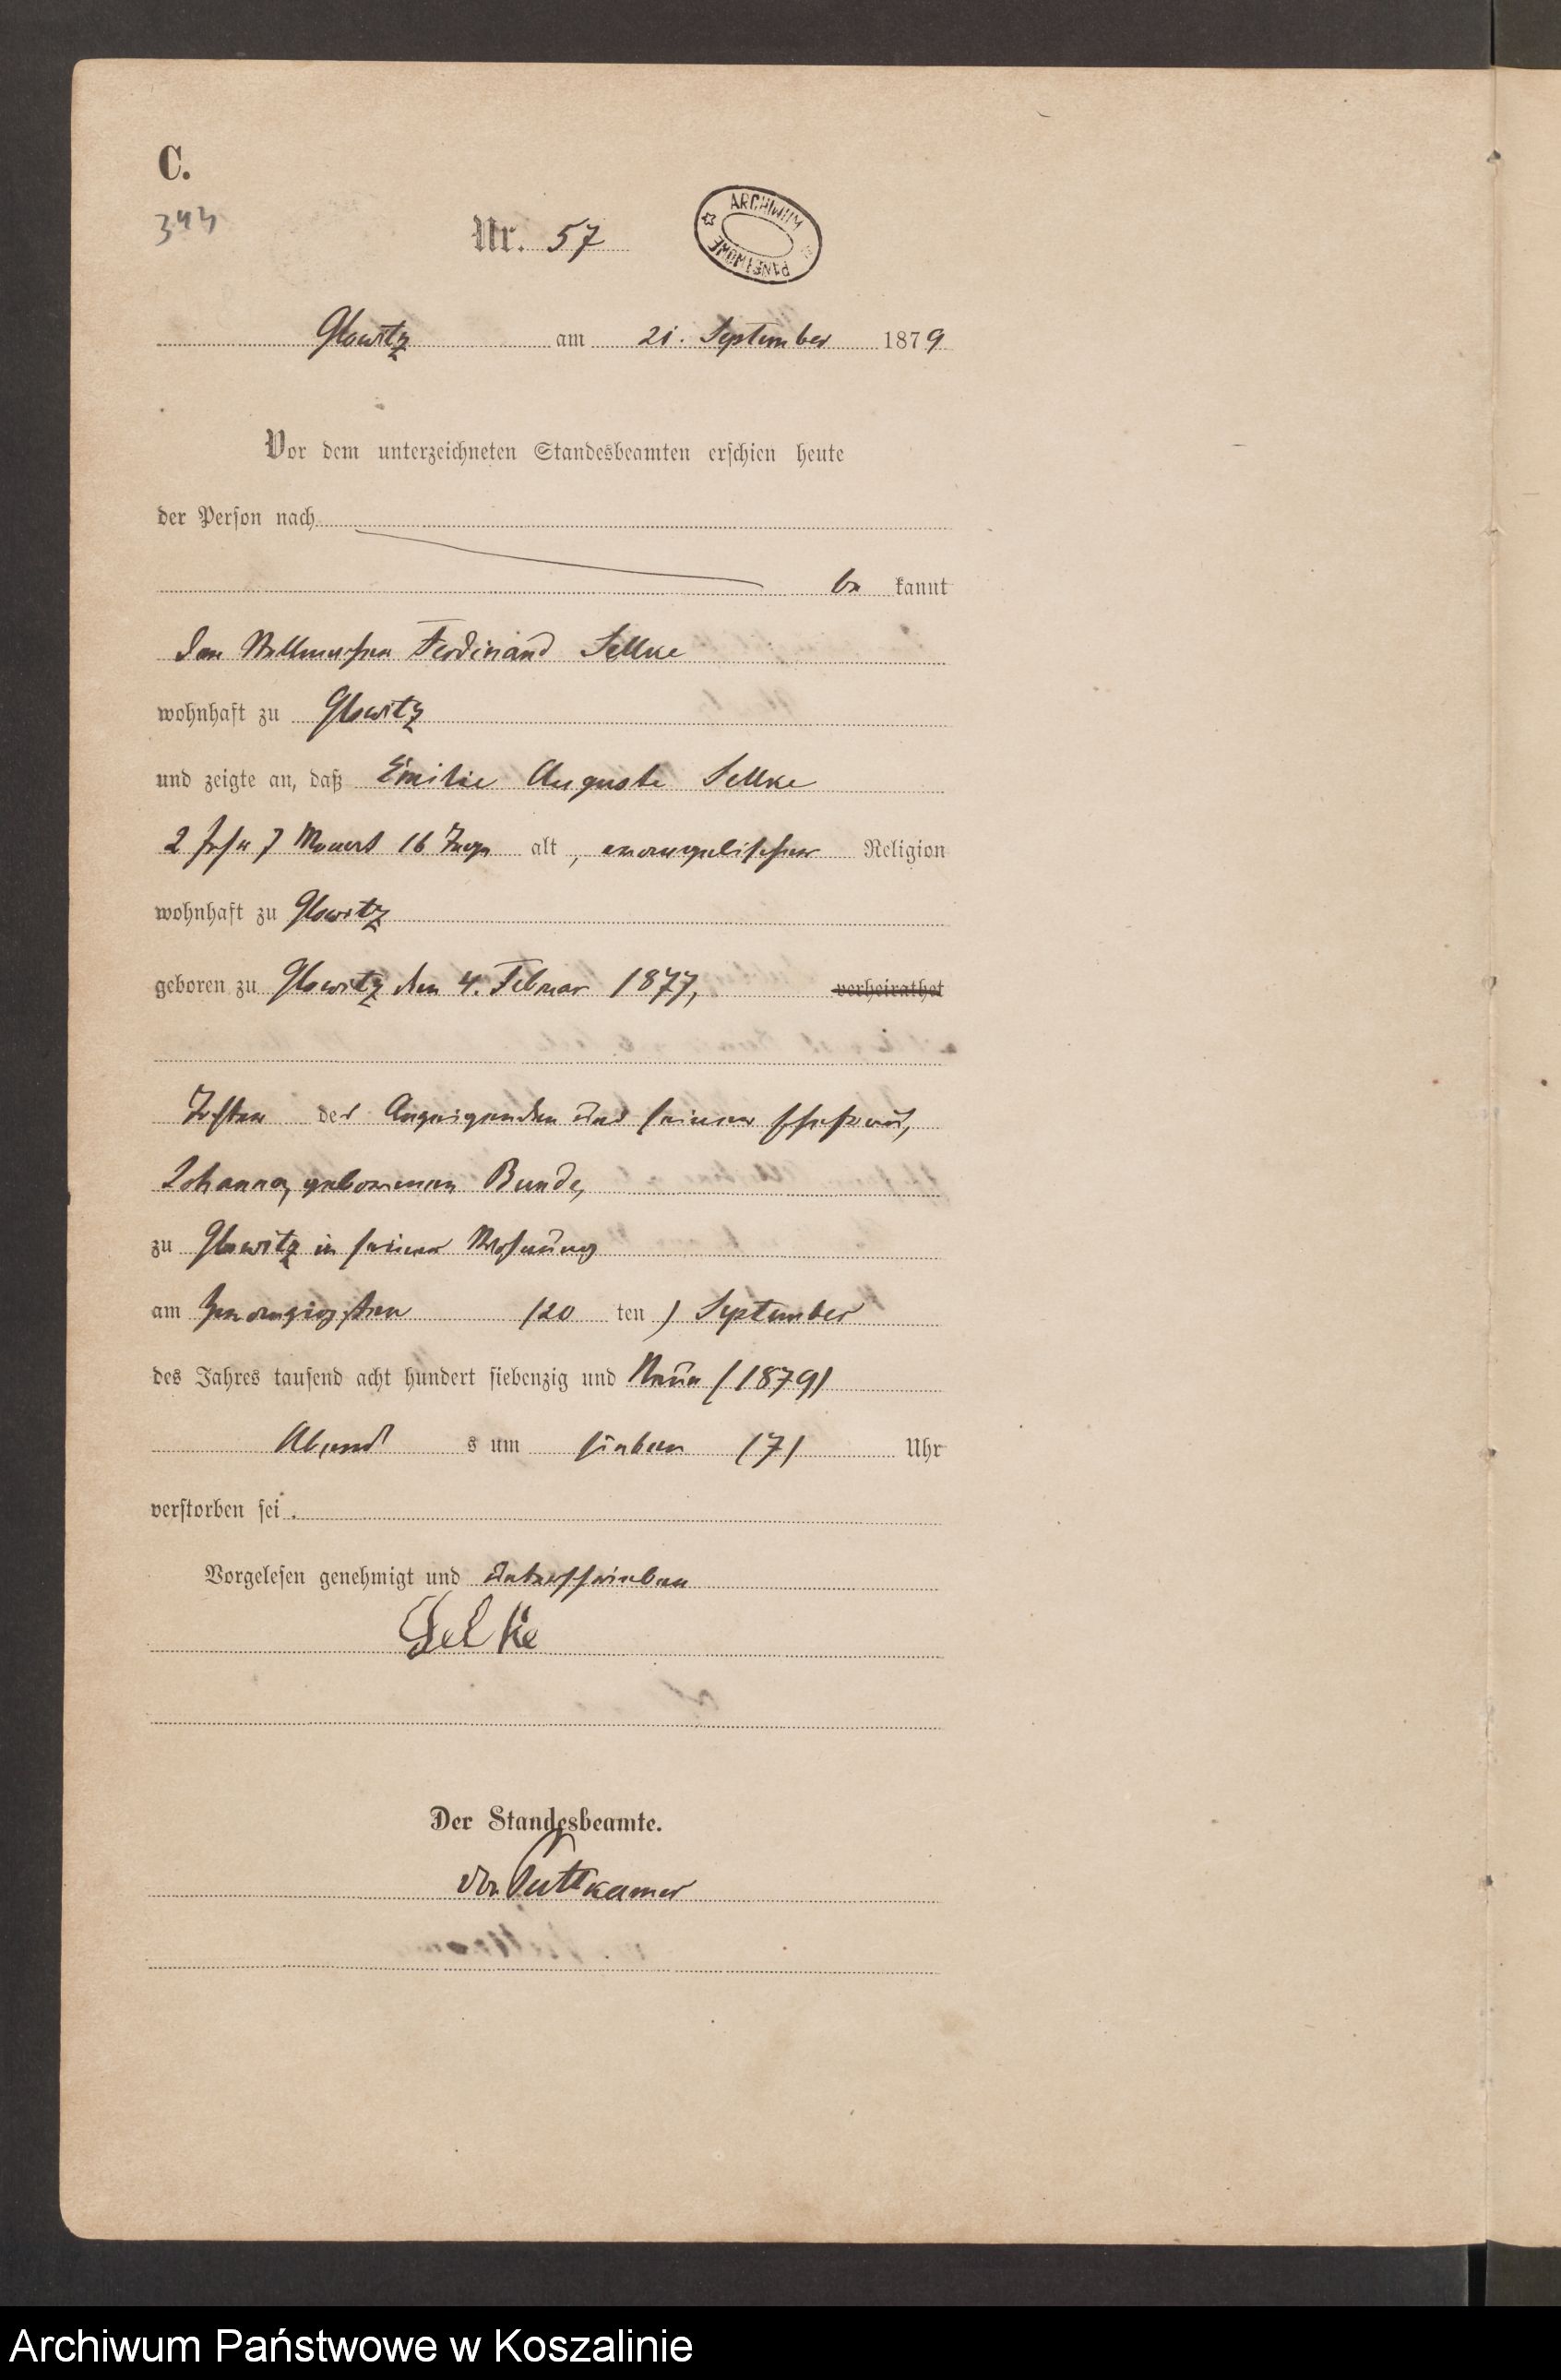 C.
344
Nr. 57
ARCHIWUM PAŃSTWOWE
Glowitz am 21. September 1879
Vor dem unterzeichneten Standesbeamten erschien heute
der Person nach
be kannt
Ferdinand Sellke
wohnhaft zu Glowitz
und zeigte an, daß Emilie Auguste Sellke
2 Jahr 7 Monat 16 Tage alt, evangelischer Religion
wohnhaft zu Glowitz
geboren zu Glowitz den 4. Februar 1877, verheirathet
Tochter des Anzeigenden und seiner Ehefrau,
Johanna, geborenen Bunde,
zu Glowitz in seiner Wohnung
am zwanzigsten (20 ten) September
des Jahres tausend acht hundert siebenzig und Neun (1879)
Abend s um sieben (7) Uhr
verstorben sei.
Vorgelesen genehmigt und unterschrieben
Selke
Der Standesbeamte.
von Puttkamer
Archiwum Państwowe w Koszalinie